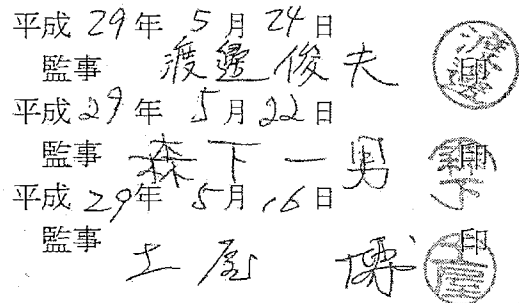 平成29年 5月24日
監事 渡邊俊夫 印
平成29年 5月22日
監事 森下一男 印
平成29年 5月16日
監事 土屋 博 印